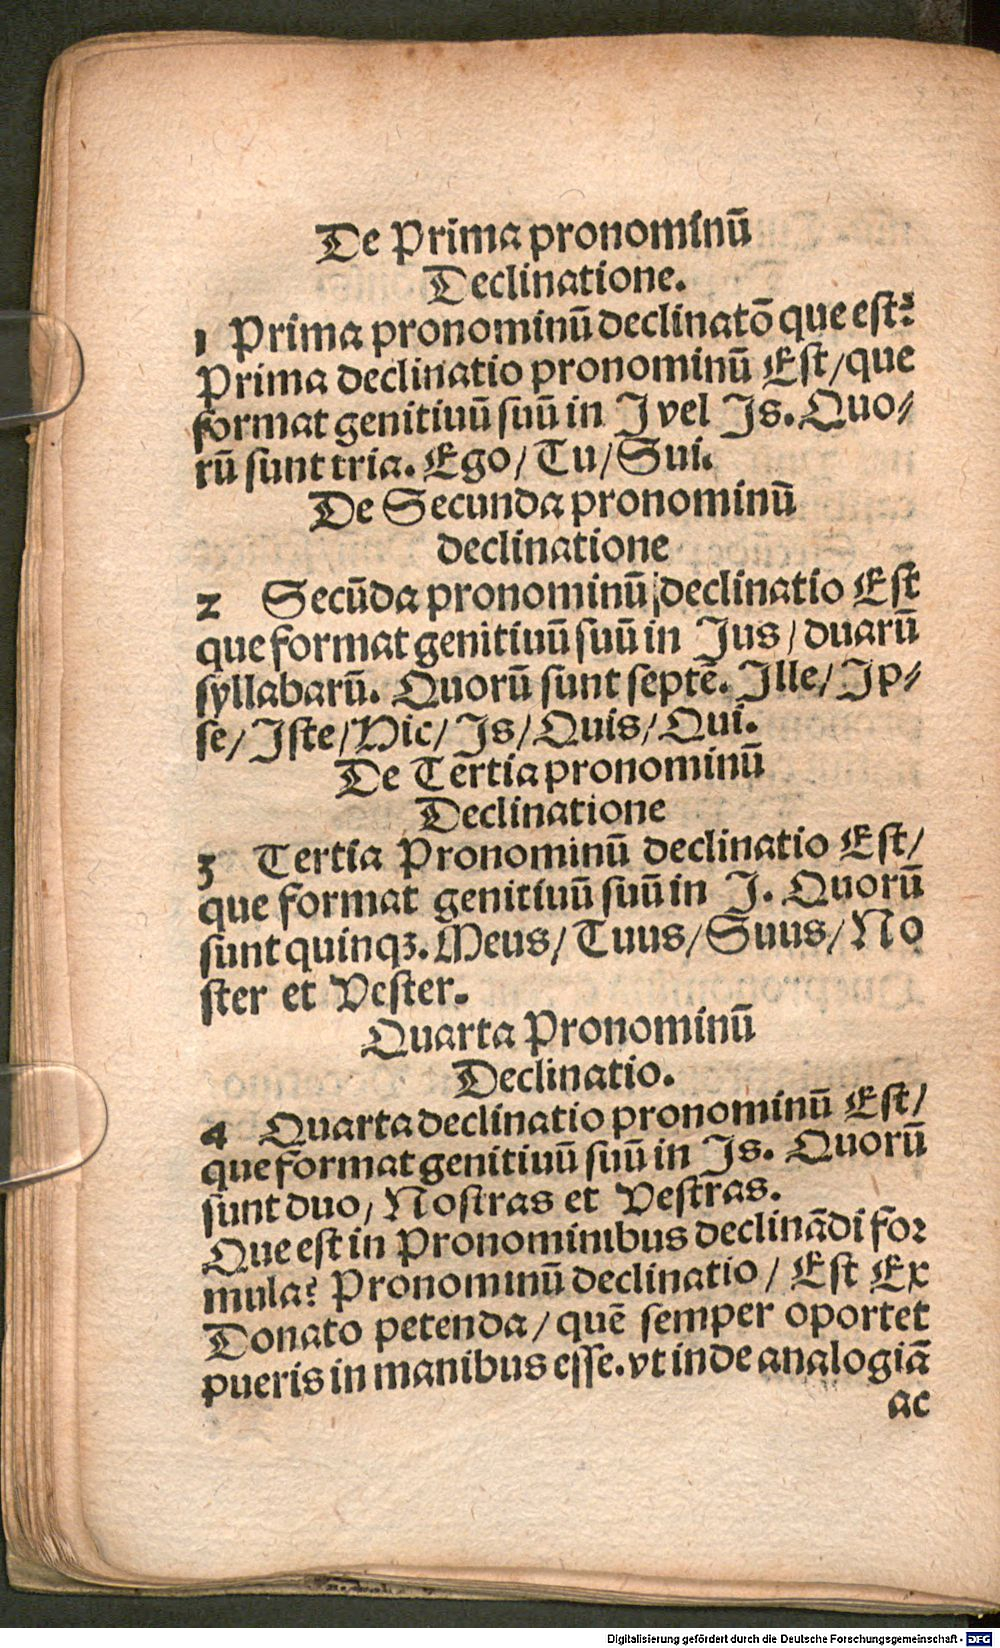 De Prima pronominū
Declinatione.
1 Prima pronominū declinatō que est?
Prima declinatio pronominū Est/que
format genitiuū suū in J vel Js. Quo⸗
rū sunt tria. Ego/Tu/Sui.
De Secunda pronominū
declinatione
2 Secūda pronominū declinatio Est
que format genitiuū suū in Jus/duarū
syllabarū. Quorū sunt septē. Jlle/Jp⸗
se/Jste/Hic/Js/Quis/Qui.
De Tertia pronominū
Declinatione
3 Tertia Pronominū declinatio Est/
que format genitiuū suū in J. Quorū
sunt quinqꝫ. Meus/Tuus/Suus/No
ster et Vester.
Quarta Pronominū
Declinatio.
4 Quarta declinatio pronominū Est/
que format genitiuū suū in Js. Quorū
sunt duo/Nostras et Vestras.
Que est in Pronominibus declinādi for
mula? Pronominū declinatio/Est Ex
Donato petenda/quē semper oportet
pueris in manibus esse. vt inde analogiā
ac
Digitalisierung gefördert durch die Deutsche Forschungsgemeinschaft - DFG